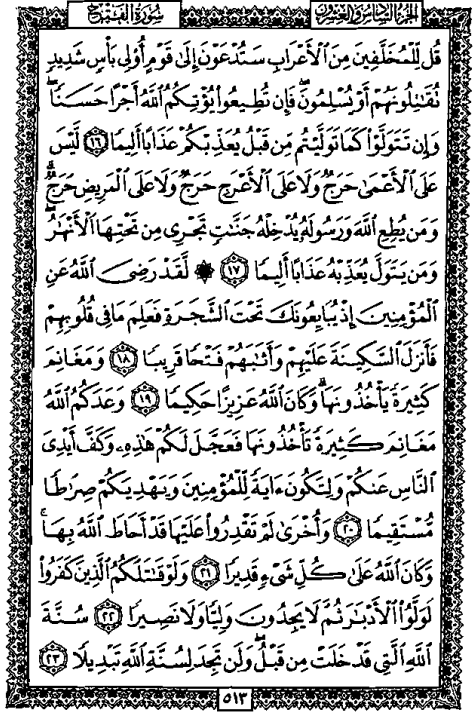 سُورَةُ الفَتْحِ
الجزء السادس والعشرون
قُل لِّلْمُخَلَّفِينَ مِنَ ٱلْأَعْرَابِ سَتُدْعَوْنَ إِلَىٰ قَوْمٍ أُو۟لِى بَأْسٍ شَدِيدٍ
تُقَٰتِلُونَهُمْ أَوْ يُسْلِمُونَ ۖ فَإِن تُطِيعُوا۟ يُؤْتِكُمُ ٱللَّهُ أَجْرًا حَسَنًا ۖ
وَإِن تَتَوَلَّوْا۟ كَمَا تَوَلَّيْتُم مِّن قَبْلُ يُعَذِّبْكُمْ عَذَابًا أَلِيمًا ١٦ لَّيْسَ
عَلَى ٱلْأَعْمَىٰ حَرَجٌ وَلَا عَلَى ٱلْأَعْرَجِ حَرَجٌ وَلَا عَلَى ٱلْمَرِيضِ حَرَجٌ ۗ
وَمَن يُطِعِ ٱللَّهَ وَرَسُولَهُۥ يُدْخِلْهُ جَنَّٰتٍ تَجْرِى مِن تَحْتِهَا ٱلْأَنْهَٰرُ ۖ
وَمَن يَتَوَلَّ يُعَذِّبْهُ عَذَابًا أَلِيمًا ١٧ ۞ لَّقَدْ رَضِىَ ٱللَّهُ عَنِ
ٱلْمُؤْمِنِينَ إِذْ يُبَايِعُونَكَ تَحْتَ ٱلشَّجَرَةِ فَعَلِمَ مَا فِى قُلُوبِهِمْ
فَأَنزَلَ ٱلسَّكِينَةَ عَلَيْهِمْ وَأَثَٰبَهُمْ فَتْحًا قَرِيبًا ١٨ وَمَغَانِمَ
كَثِيرَةً يَأْخُذُونَهَا ۗ وَكَانَ ٱللَّهُ عَزِيزًا حَكِيمًا ١٩ وَعَدَكُمُ ٱللَّهُ
مَغَانِمَ كَثِيرَةً تَأْخُذُونَهَا فَعَجَّلَ لَكُمْ هَٰذِهِۦ وَكَفَّ أَيْدِىَ
ٱلنَّاسِ عَنكُمْ وَلِتَكُونَ ءَايَةً لِّلْمُؤْمِنِينَ وَيَهْدِيَكُمْ صِرَٰطًا
مُّسْتَقِيمًا ٢٠ وَأُخْرَىٰ لَمْ تَقْدِرُوا۟ عَلَيْهَا قَدْ أَحَاطَ ٱللَّهُ بِهَا ۚ
وَكَانَ ٱللَّهُ عَلَىٰ كُلِّ شَىْءٍ قَدِيرًا ٢١ وَلَوْ قَٰتَلَكُمُ ٱلَّذِينَ كَفَرُوا۟
لَوَلَّوُا۟ ٱلْأَدْبَٰرَ ثُمَّ لَا يَجِدُونَ وَلِيًّا وَلَا نَصِيرًا ٢٢ سُنَّةَ
ٱللَّهِ ٱلَّتِى قَدْ خَلَتْ مِن قَبْلُ ۖ وَلَن تَجِدَ لِسُنَّةِ ٱللَّهِ تَبْدِيلًا ٢٣
٥١٣